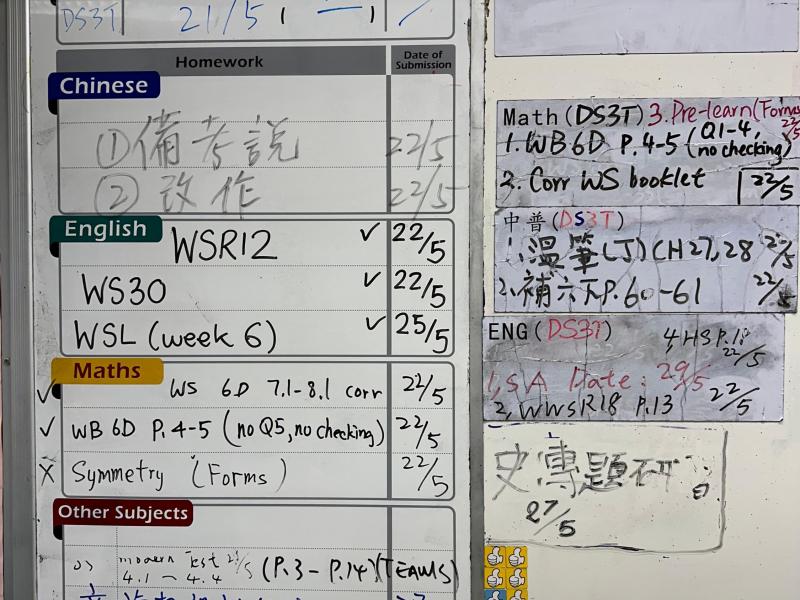 DS3T 21/5
Homework
Date of Submission
Chinese
①備考說 22/5
② 改作 22/5
English
WSR12 ✓ 22/5
WS30 ✓ 22/5
WSL (week 6) ✓ 25/5
Maths
✓ WS 6D 7.1-8.1 corr 22/5
✓ WB 6D P.4-5 (no Q5, no checking) 22/5
X Symmetry (Forms) 22/5
Other Subjects
modern Test
4.1 - 4.4 (P.3 - P.14) (TEAMS)
Math (DS3T) 3. Pre-learn (Forms 22/5
1. WB 6D P.4-5 (Q1-4, no checking)
2. Corr WS booklet 22/5
中普 (DS3T)
1. 溫筆(J) CH27,28 22/5
2. 補六下P.60-61 22/5
ENG (DS3T)
4, HS P.18 22/5
1, SA Date: 29/5
2, WWSR18 P.13 22/5
史專題研
27/5